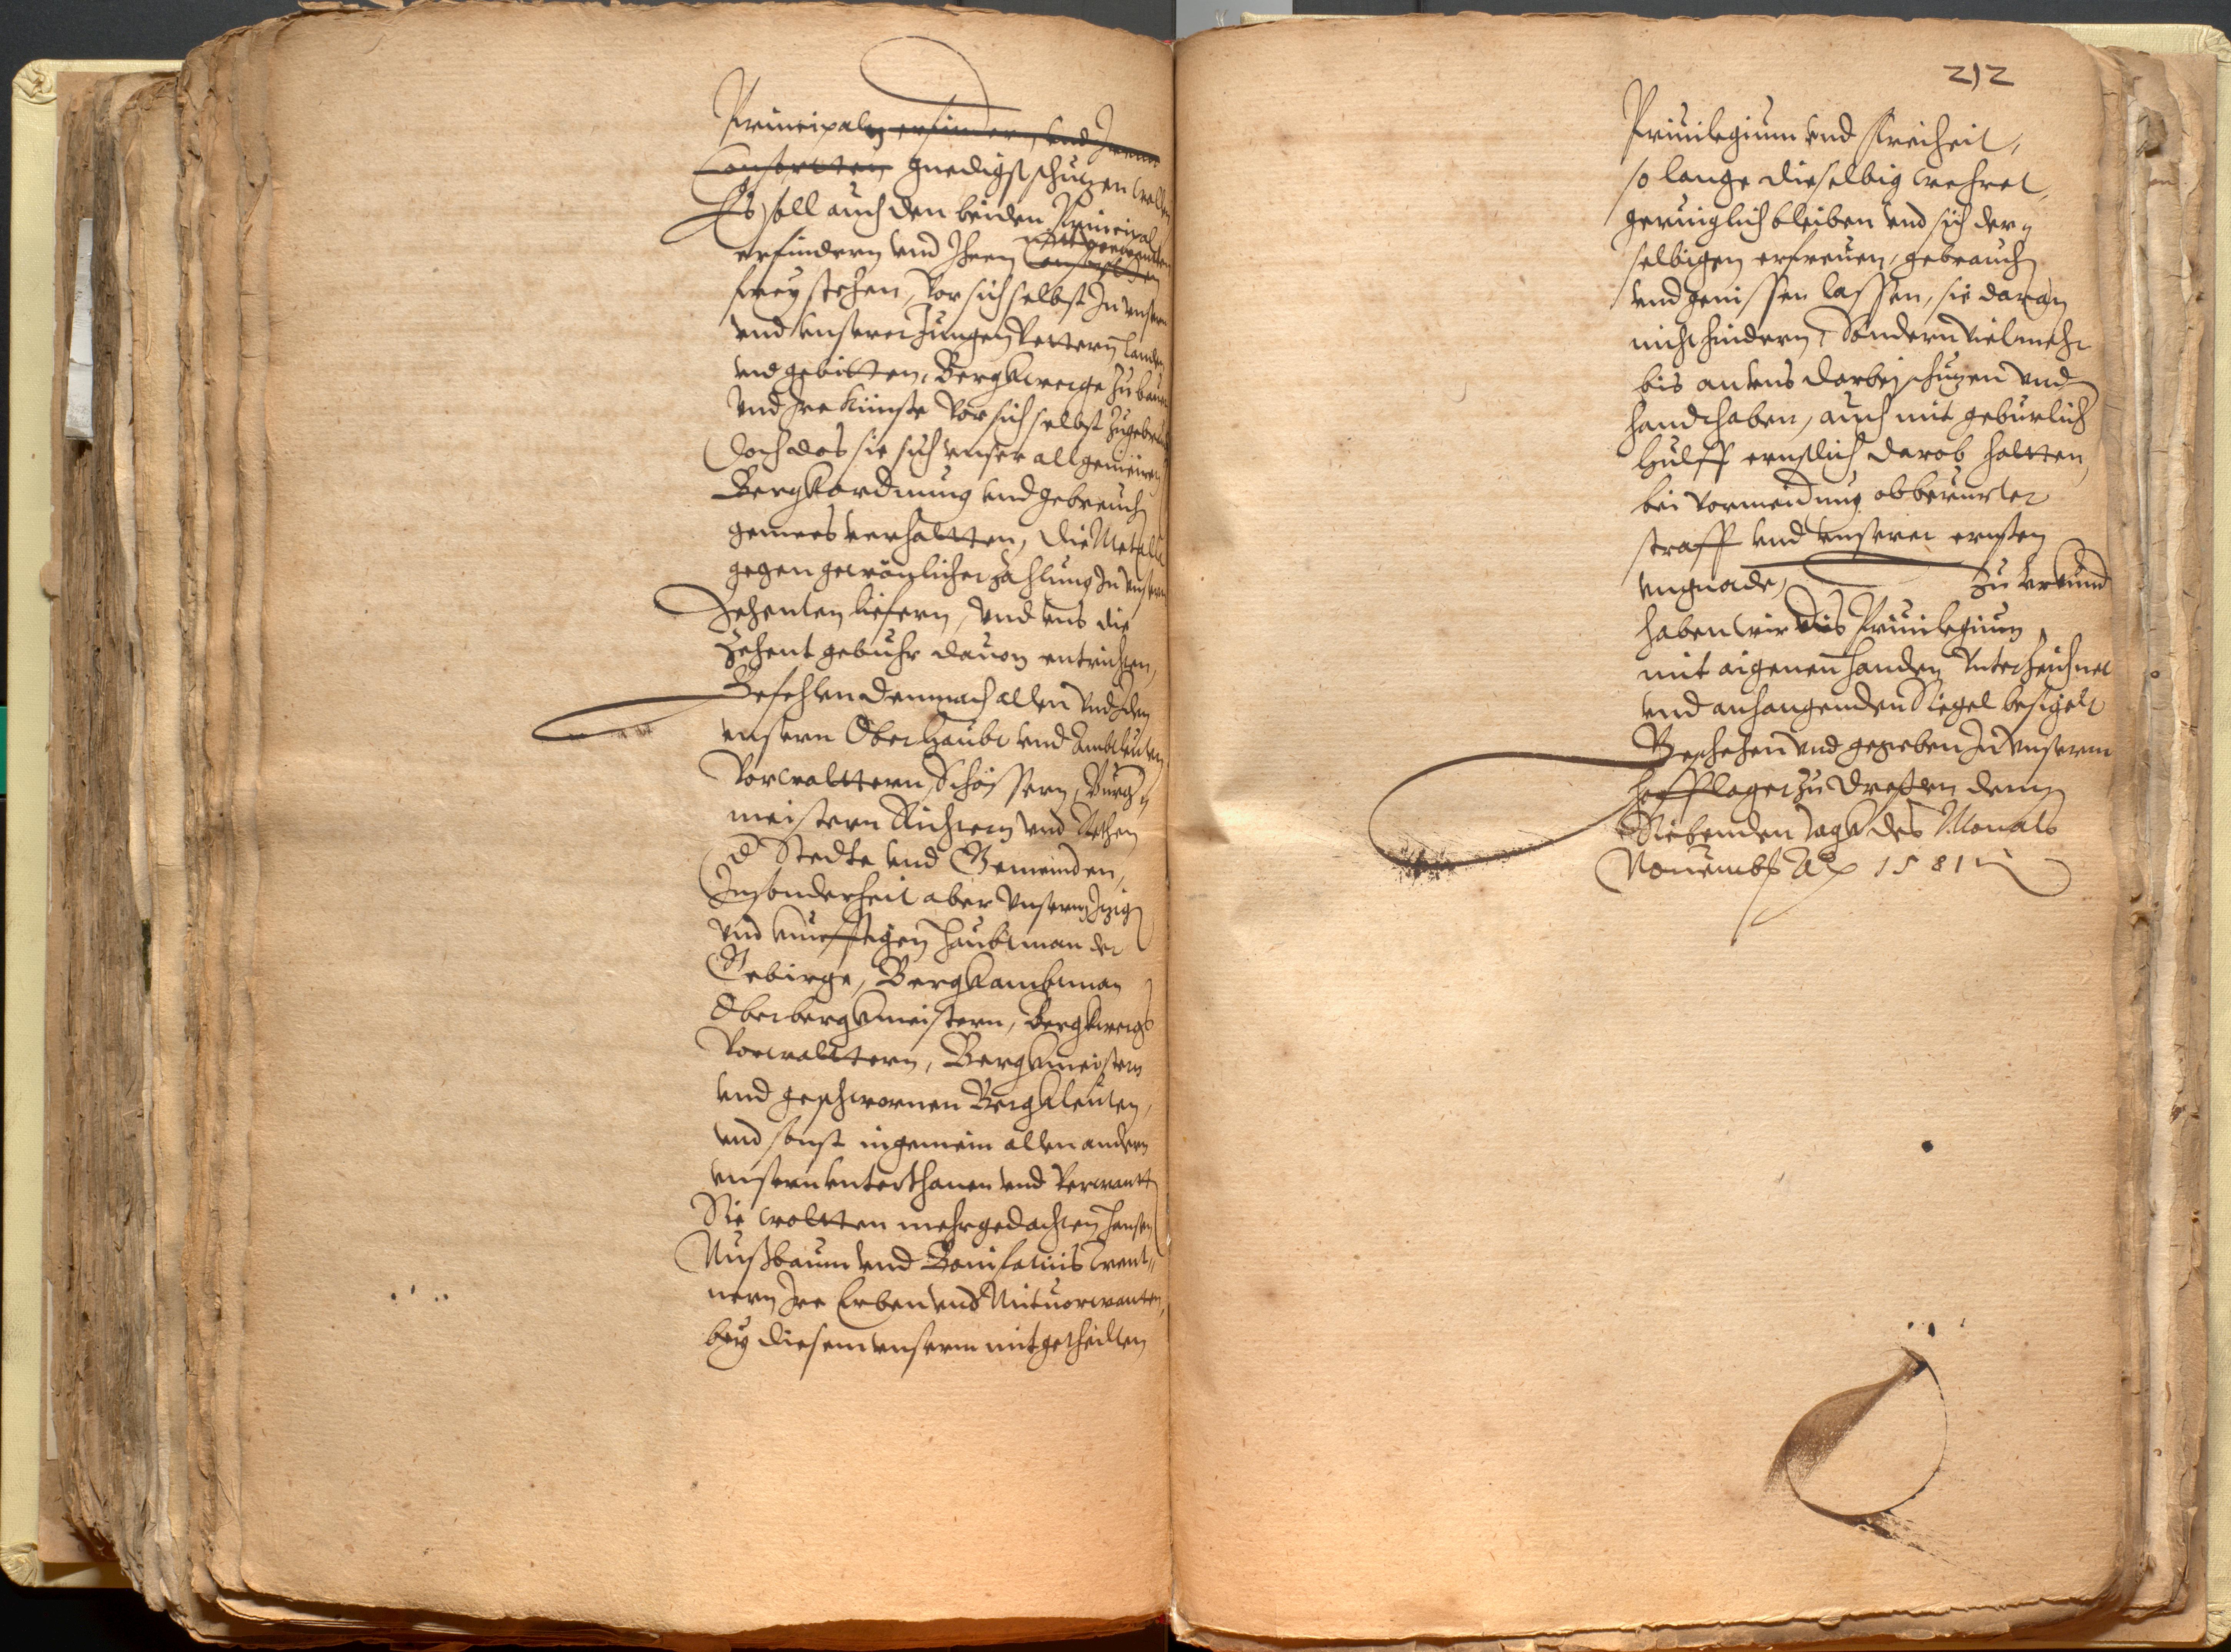 Principaln erfindern, vnd Jrenn
Consorten gnedigst schutzen wollen
Es soll auch den beiden Principal
erfindern vnd Jhren Consorten mitvorwantten
frey stehen, Vor sich selbst Jn vnsern
vnd vnserer Jungen Vettern Landen
vnd gebitten, Bergkwerge zu bauen
Vnd Jre Künste Vor sich selbst zugebrauch
Doch das sie sich vnser allgemeinen
Bergkordnung vnd gebreuch
gemees verhaltten, die Metalle
gegen gewönlicher Zahlung Jn vnsern
Zehenten liefern, vnd vns die
Zehent gebuhr dauon entrichten,
Befehlen demnach allen vnd Jden
vnsern Ober Haubt vnd Ambtleuten
Vorwalttern, Schössern, Burg-
meistern Richtern vnd Rethen
d Stedte vnd Gemeinden,
Jnsonderheit aber vnserm Jtzig
vnd kunfftigen Haubtman der
Gebirge, Bergkambtman
Oberbergkmeistern, Bergkwergs
Vorwalttern, Bergkmeistern
vnd geschwornen Bergkleuten,
vnd sonst ingemein allen andern
vnsern vnterthanen vnd Verwantt
Sie woltten mehrgedachten Hansen
Nußbaum vnd Bonifacius Went-
nern Jre Erben vnd Mituorwanten,
bey diesem vnserm mitgetheilten
212
Priuilegium vnd Freiheit,
so lange dieselbig wehret,
geruiglich bleiben vnd sich der-
selbigen erfreuen, gebrauch
vnd genissen lassen, sie daran
nicht hindern, Sondern vielmehr
bis an vns darbej schutzen vnd
handhaben, auch mit geburlich
Hulff ernstlich darob haltten,
bei vormeidung obberurter
straff vnd vnserer ernsten
vngnade, Zu Vrkund
haben wir dis Priuilegium
mit aigenen Handen Vnterzeichnet
vnd anhangenden Siegel besigelt
Geschehen vnd gegeben Jn vnserm
Hofflager zu Dreßen denn
Siebenden tagk des Monats
Nouembr Ao 1581